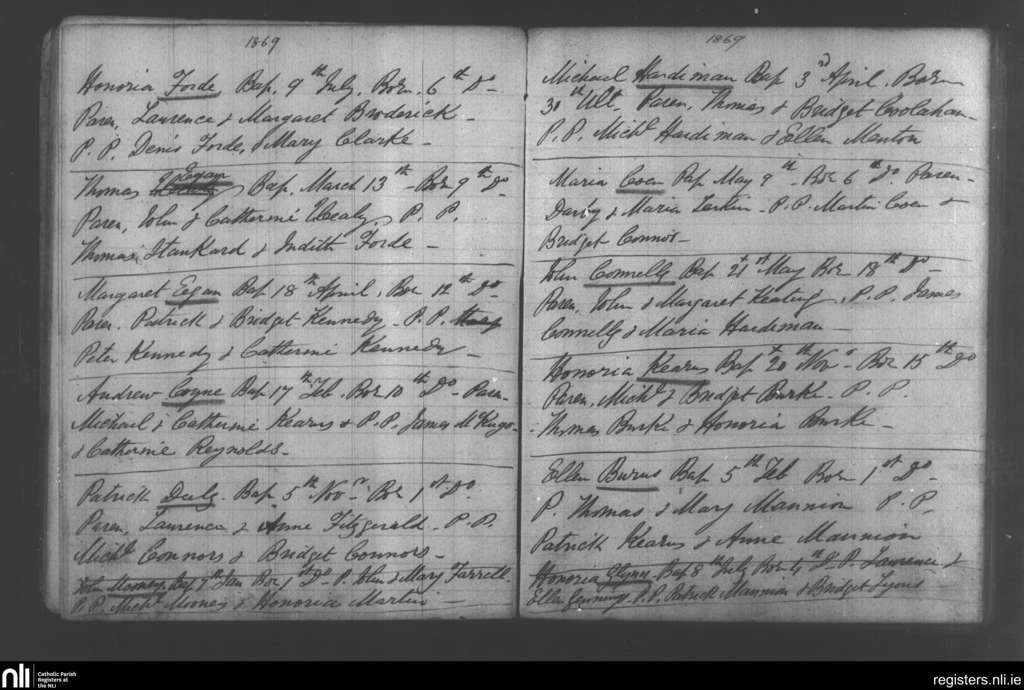 1869
Honoria Forde Bap. 9th July. Born. 6th Do
Paren, Laurence & Margaret Broderick
P. P. Denis Forde, & Mary Clarke
Thomas Bap. March 13th Bor 9th Do
Paren, John & Catherine Healy P. P.
Thomas Stankard & Judith Forde
Margaret Eegan Bap 18th April. Bor 12th Do
Paren. Patrick & Bridget Kennedy P. P.
Peter Kennedy & Catherine Kennedy
Andrew Coyne Bap 17th Feb. Bor 10th Do Paren
Michael & Catherine Kearns & P. P. James McHugo
& Catherine Reynolds
Patrick Duly Bap. 5th Novr Bor 1st Do
Paren, Laurence & Anne Fitzgerald P. P.
Michl Connors & Bridget Connors
John Mooney Bap 7th Jan Bor 1st Do P. John & Mary Farrell
P. P. Michl Mooney & Honoria Martin
1869
Michael Hardiman Bap 3rd April. Born
30th Ult. Paren, Thomas & Bridget Coolahan
P. P. Michl Hardiman & Ellen Menton
Maria Coen Bap May 9th Bor 6th Do Paren
Darby & Maria Larkin P. P. Martin Coen &
Bridget Connor
John Connelly Bap 21st May Bor 18th Do
Paren, John & Margaret Keating, P. P. James
Connelly & Maria Hardiman
Honoria Kearns Bap 20th Novr Bor 15th Do
Paren, Michl & Bridget Burke P. P.
Thomas Burke & Honoria Burke
Ellen Burns Bap 5th Feb Born 1st Do
P. Thomas & Mary Mannion P. P.
Patrick Kearns & Anne Mannion
Honoria Glynn Bap 8th July Born 4th Do P. Laurence &
Ellen Jennings P. P. Patrick Mannion & Bridget Lyons
nli Catholic Parish
Registers at
the NLI
registers.nli.ie